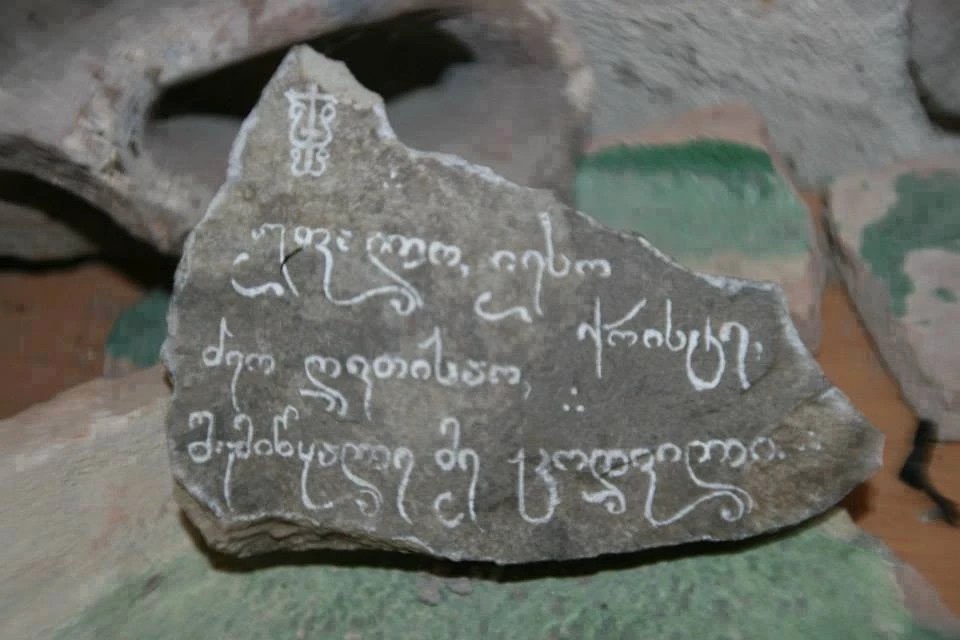 უფალო, იესო
ქრისტე,
ძეო ღვთისაო,
შემიწყალე მე ცოდვილი.